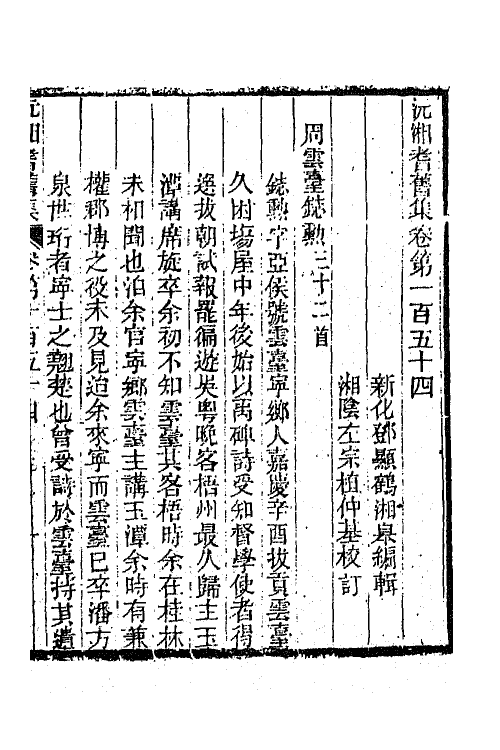 沅湘耆舊集卷第一百五十四
新化鄧顯鶴湘皋編輯
湘陰左宗植仲基校訂
周雲臺鋕勳三十二首
鋕勳字亞侯號雲臺寧鄉人嘉慶辛酉拔貢雲臺
久困場屋中年後始以禹碑詩受知督學使者得
選拔朝試報罷徧遊吳粵晚客梧州最久歸主玉
潭講席旋卒余初不知雲臺其客梧時余在桂林
未相聞也洎余官寧鄉雲臺主講玉潭余時有兼
權郡博之役未及見迨余來寧而雲臺已卒潘方
泉世珩者寧士之翹楚也曾受詩於雲臺持其遺
沅湘耆舊集 卷第一百五十四